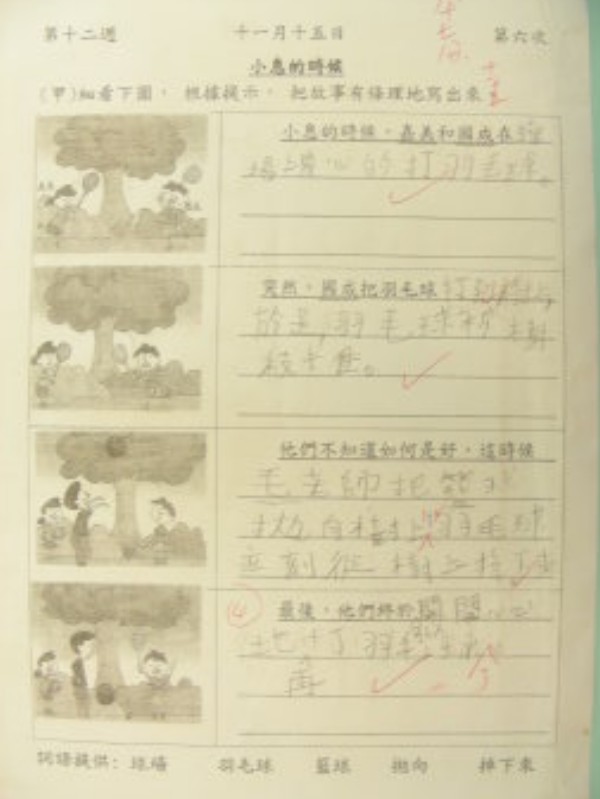 第十二週 十一月十五日 第六次
小息的時候
(甲)細看下圖， 根據提示， 把故事有條理地寫出來
小息的時候，嘉美和國成在
心的打羽毛球。
突然，國成把羽毛球打到樹上，
於是，羽毛球被樹
枝卡住。
他們不知道如何是好，這時候
毛老師把籃球
拋向樹上，羽毛球
立刻從樹上掉下
④ 最後，他們終於開開心心
地打羽毛球
詞語提供： 球場 羽毛球 籃球 拋向 掉下來